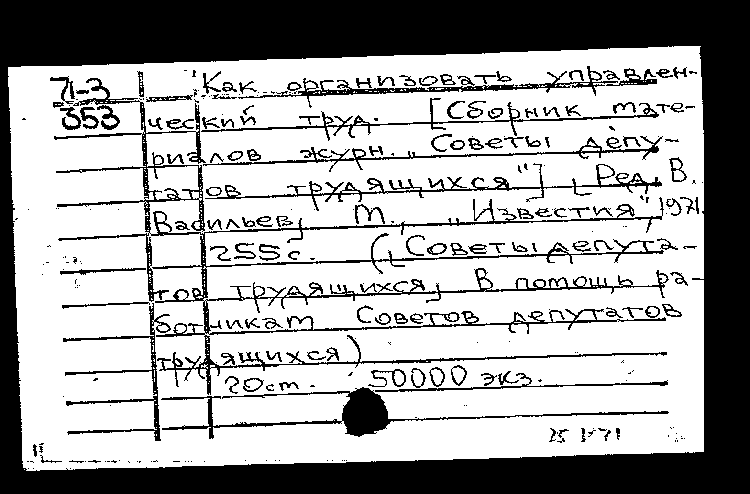 71-3 Как организовать управлен-
353 ческий труд. [Сборник мате-
риалов журн. „Советы депу-
татов трудящихся"] [Ред. В.
Васильев] М., „Известия", 1971.
255 с. ([Советы депута-
тов трудящихся] В помощь ра-
ботникам Советов депутатов
трудящихся)
20 см. 50000 экз.